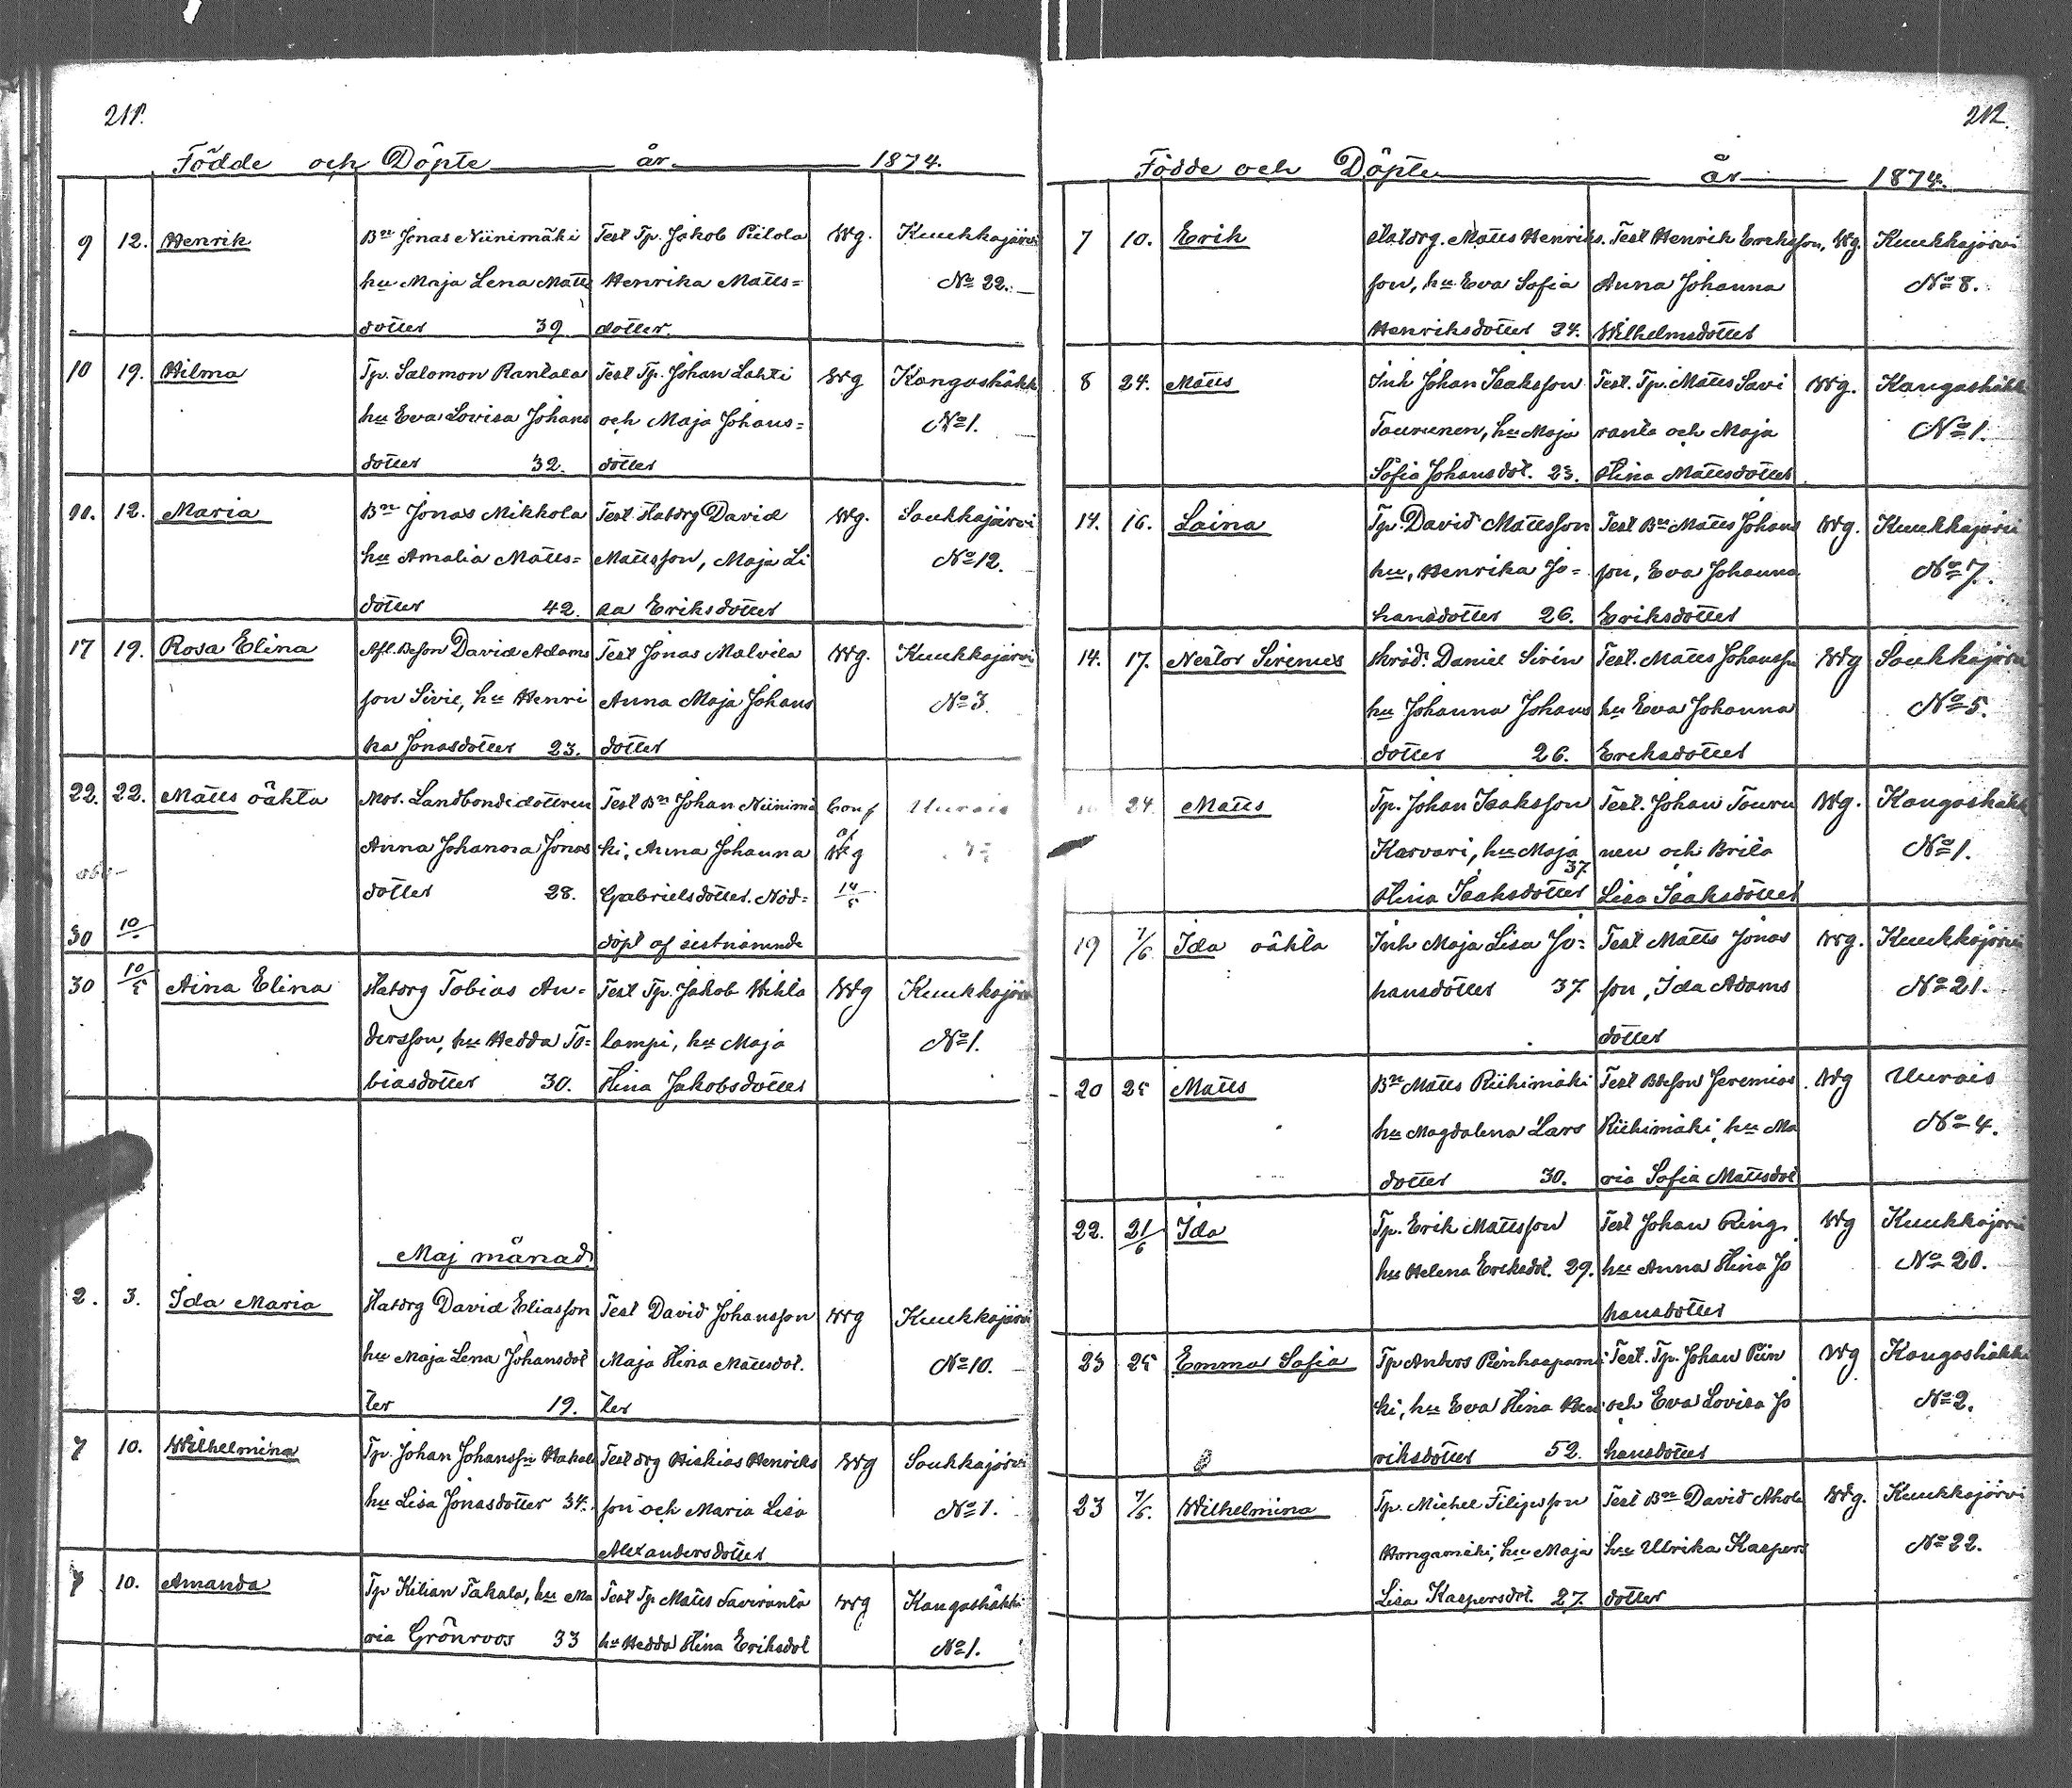 211.
Födde och Döpte år 1874.
9 12. Henrik Bn Jonas Niinimäki Test Tp. Jakob Piilola Wg. Kuukkajärvi
hu Maja Lena Matts Henrika Matts= No 22.
dotter 39 dotter.
10 19. Hilma Tp. Salomon Rantala Test Tp. Johan Lahti Wg Kangashäkki
hu Eva Lovisa Johans och Maja Johans= No 1.
dotter 32. dotter
12. Maria Bn Jonas Mikkola Test Hatorg David Wg. Saukkajärvi
hu Amalia Matts= Mattsson, Maja Li No 12.
dotter 42. sa Eriksdotter
17 19. Rosa Elina Afl. Beson David Adams Test Jonas Malvila Wg. Kuukkajärvi
son Sivie, hu Henri Anna Maja Johans No 3.
ka Jonasdotter 23. dotter
22. 22. Matts oäkta Mor. Landbondedottren Test Bn Johan Niinimä Conf Uurais
Anna Johanna Jonas ki, Anna Johanna af Wg
dotter 28. Gabrielsdotter. Nöd= 14/5
30 10 döpt af sistnämnde
30 10/5 Aina Elina Hatorg Tobias An= Test Tp. Jakob Wihta Wg Kuukkajärvi
dersson, hu Hedda To= lampi, hu Maja No 1.
biasdotter 30. Stina Jakobsdotter
Maj månad
2. 3. Ida Maria Hatorg David Eliasson Test David Johansson Wg Kuukkajärvi
hu Maja Lena Johansdot Maja Stina Mattsdot. No 10.
ter 19. ter
7 10. Wilhelmina Tp. Johan Johansson Hakala Test drg Hiskias Henriks Wg Saukkajärvi
hu Lisa Jonasdotter 34. son och Maria Lisa No 1.
Alexandersdotter
7 10. Amanda Tp Kilian Takala, hu Ma Test Tp Matts Saviranta Wg Kangashäkki
ria Grönroos 33 hu Hedda Stina Eriksdot No 1.
212.
Födde och Döpte år 1874.
7 10. Erik Hatorg. Matts Henriks. Test Henrik Eriksson, Wg. Kuukkajärvi
son, hu Eva Sofia Anna Johanna No 8.
Henriksdotter 24. Wilhelmsdotter
8 24. Matts Inh Johan Isaksson Test. Tp. Matts Savi Wg. Kangashäkki
Taurunen, hu Maja ranta och Maja No 1.
Sofia Johansdot. 23. Stina Mattsdotter
14. 16. Laina Tp. David Mattsson Test Bn Matts Johans Wg. Kuukkajärvi
hu, Henrika Jo= son, Eva Johanna No 7.
hansdotter 26. Eriksdotter
14. 17. Nestor Sirenius Skräd. Daniel Sirén Test. Matts Johansson Wg Saukkajärvi
hu Johanna Johans hu Eva Johanna No 5.
dotter 26. Eriksdotter
24. Matts Tp. Johan Isaksson Test. Johan Tauru Wg. Kangashäkki
Karvari, hu Maja nen och Brita No 1.
37.
Stina Isaksdotter Lisa Isaksdotter
19 7/6 Ida oäkta Inh Maja Lisa Jo= Test Matts Jonas Wg. Kuukkajärvi
hansdotter 37 son, Ida Adams No 21.
dotter
20 25 Matts Bn Matts Riihimäki Test Bdeson Jeremias Wg Uurais
hu Magdalena Lars Riihimäki, hu Ma No 4.
dotter 30. ria Sofia Mattsdot
22. 21/6 Ida Tp. Erik Mattsson Test Johan Ring, Wg Kuukkajärvi
hu Helena Eriksdot. 29. hu Anna Stina Jo No 20.
hansdotter
23 25 Emma Sofia Tp Anders Test. Tp. Johan Piin Wg Kangashäkki
ki, hu Eva Stina Hen och Eva Lovisa Jo No 2.
riksdotter 52. hansdotter
23 7/6. Wilhelmina Tp. Michel Filipsson Test Bn David Ahola Wg. Kuukkajärvi
Hongamäki, hu Maja hu Ulrika Kaspers No 22.
Lisa Kaspersdot. 27. dotter